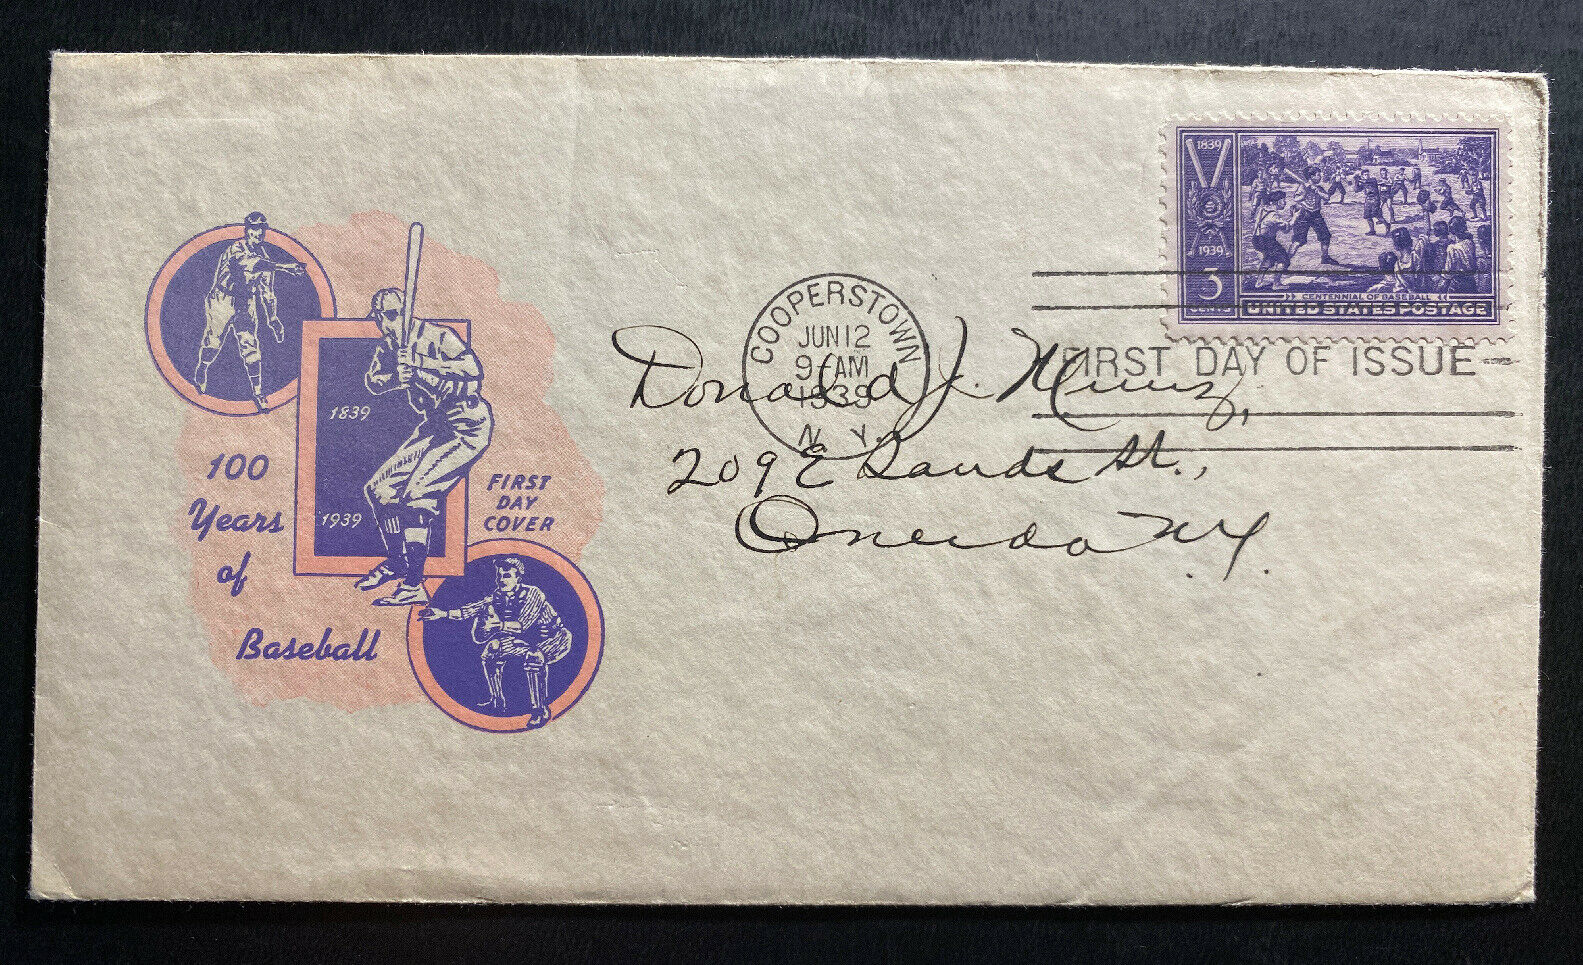 1839
1939
3
CENTS
CENTENNIAL OF BASEBALL
UNITED STATES POSTAGE
COOPERSTOWN
JUN 12
9 AM
1939
N. Y.
FIRST DAY OF ISSUE
Donald J.
209 E Sands St.,
Oneida N.Y.
1839
1939
100
Years
of
Baseball
FIRST
DAY
COVER